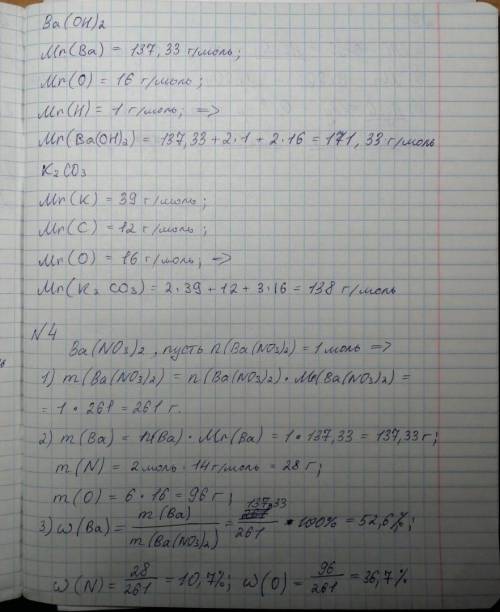 Ba(OH)2
Mr(Ba) = 137,33 г/моль;
Mr(O) = 16 г/моль;
Mr(H) = 1 г/моль; =>
Mr(Ba(OH)2) = 137,33 + 2·1 + 2·16 = 171,33 г/моль
K2CO3
Mr(K) = 39 г/моль;
Mr(C) = 12 г/моль;
Mr(O) = 16 г/моль; =>
Mr(K2CO3) = 2·39 + 12 + 3·16 = 138 г/моль
N4
Ba(NO3)2, пусть n(Ba(NO3)2) = 1 моль =>
1) m(Ba(NO3)2) = n(Ba(NO3)2) · Mr(Ba(NO3)2) =
= 1 · 261 = 261 г.
2) m(Ba) = n(Ba) · Mr(Ba) = 1 · 137,33 = 137,33 г;
m(N) = 2 моль · 14 г/моль = 28 г;
m(O) = 6 · 16 = 96 г;
3) w(Ba) = m(Ba) / m(Ba(NO3)2) = 137,33 / 261 · 100% = 52,6%;
w(N) = 28/261 = 10,7%; w(O) = 96/261 = 36,7%